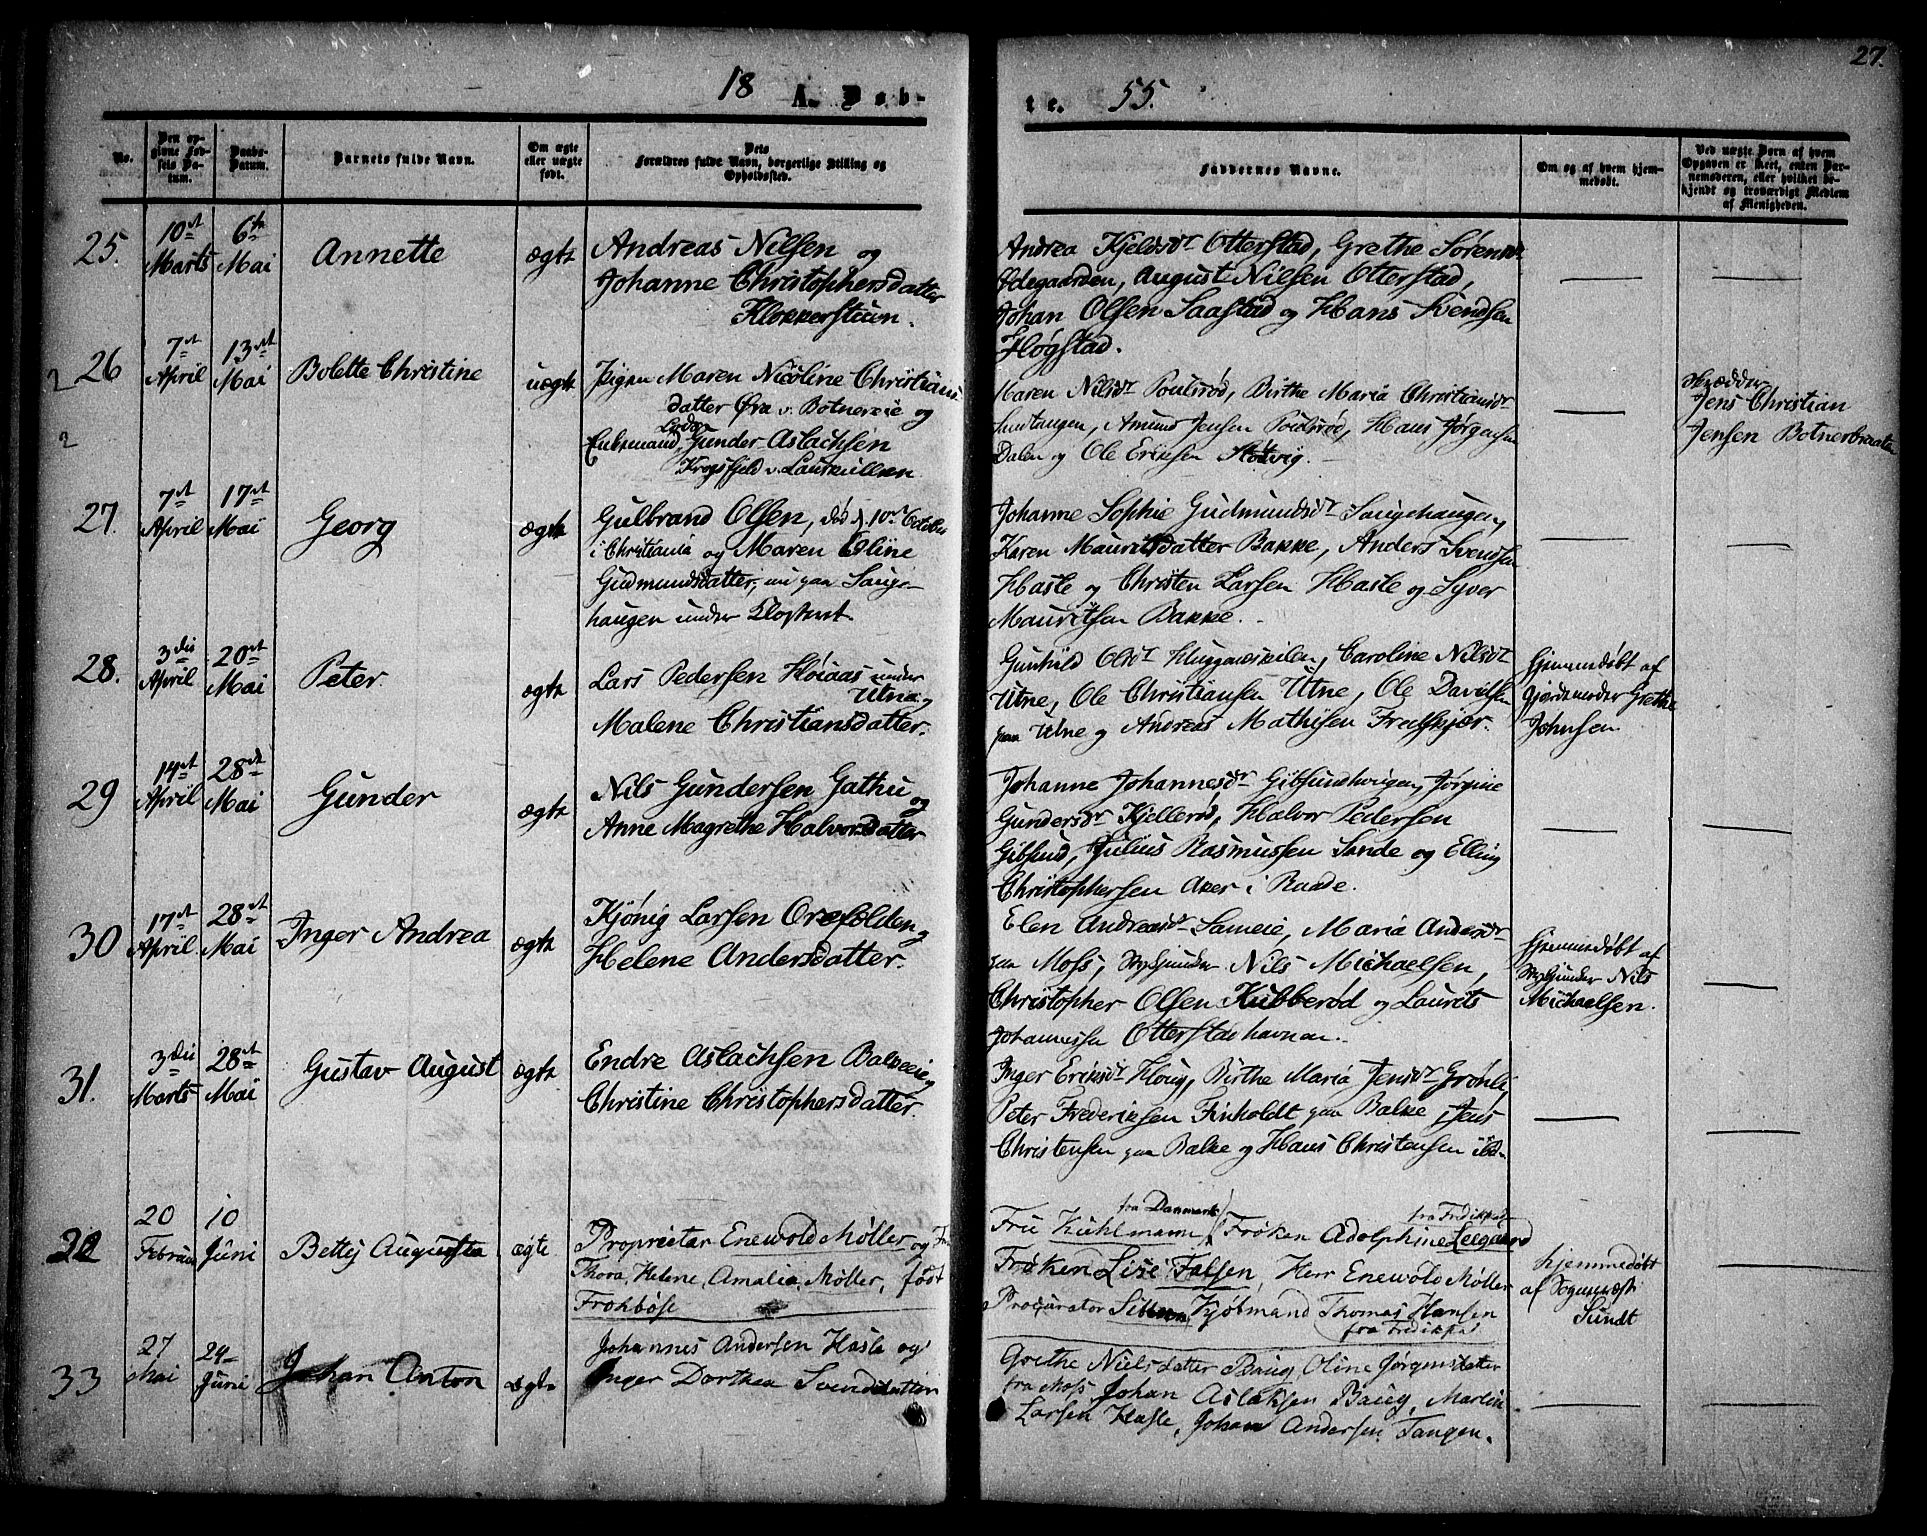 27.
18 A. Døb-
te. 55.
No.
Den op-
givne Fød-
sels Da-
tum.
Daabs-
Datum.
Barnets fulde Navn.
Om ægte
eller uægte
født.
Dets
Forældres fulde Navn, borgerlige Stilling og
Opholdssted.
Faddernes Navne.
Om og af hvem hjem-
medøbt.
Ved uægte Børn af hvem
Opgaven er skeet, enten Bar-
nemoderen, eller hvilket be-
kjendt og troværdigt Medlem
af Menigheden.
25.
10de
Marts
6te
Mai
Annette
ægte
Andreas Nilsen og
Johanne Christophersdatter
Klokkerstuen.
Andrea Kjeldsdr Otterstad, Grethe Sørensdr
Ødegaarden, August Nielsen Otterstad,
Johan Olsen Saastad og Hans Svendsen
Høgstad.
26
7de
April
13de
Mai
Bolette Christine
uægte
Pigen Maren Nicoline Christians-
datter Øra v. Botnereie og
Enkemand Gunder Aslachsen
Maren Nilsdr Poulsrød, Birthe Maria Christiansdr
Amund Jensen Poulsrød, Hans Jørgensen
Dalen og Ole Eriksen
Skrædder
Jens Christian
Jensen Botnerbraaten
27.
7de
April
17de
Mai
Georg
ægte
Gulbrand Olsen, død d. 10de October
i Christiania og Maren Oline
Gudmundsdatter, nu paa Sauge-
haugen under Klosteret.
Johanne Sophie Gudmundsdr Saugehaugen,
Karen Mauritsdatter Bakke, Anders Svendsen
Hasle og Christen Larsen Hasle og Syver
Mauritsen Bakke.
28.
3die
April
20de
Mai
Peter.
ægte
Lars Pedersen Høiaas under
Utne og
Malene Christiansdatter.
Gunhild Olsdr Huggeneskilen, Caroline Nilsdr
Utne, Ole Christiansen Utne, Ole Davidsen
paa Utne og Andreas Mathisen Fredskjær.
Hjemmedøbt af
Gjordemoder Grethe
Johnsen.
29
14de
April
28de
Mai
Gunder
ægte
Nils Gundersen Gathu
og
Anne Magrethe Halvorsdatter
Johanne Johannesdr Gibsundhougen, Jørgine
Gundersdr Kjellerød, Halvor Pedersen
Gibsund, Julius Rasmussen Sande og Elling
Christophersen Aker i Raade.
30
17de
April
28de
Mai
Inger Andrea
ægte
Kjønig Larsen Orefolden og
Helene Andersdatter.
Elen Andreasdr Sameie, Maria Andersdr
paa Moss, Nils Michaelsen,
Christopher Olsen Kubberød og Laurits
Johannesen Otterstadhavnen.
Hjemmedøbt af
Nils
Michaelsen.
31.
3die
Marts
28de
Mai
Gustav August
ægte
Endre Aslachsen Balkeeie og
Christine Christophersdatter.
Inger Eriksdr Houg, Birthe Maria Jensdr Grønli,
Peter Frederiksen Finholdt paa Balke, Jens
Christensen paa Balke og Hans Christensen ibd.
32
20
Februar
10
Juni
Betty Augusta
ægte
Proprietær Enewold Møller og Fru
Thora, Helene, Amalia, Møller, født
Frohböse
fra Danmark fra Fredrikstad
Fru Kuhlmann, Frøken Adolphine Leegaard
Frøken Lise Falsen, Herr Enewold Møller
Procurator Kjøbmand Thomas Hansen
fra Fredrikstad
hjemmedøbt
af Sognepræst
Sundt
33
27
Mai
24
Juni
Johan Anton
ægte
Johannes Andersen Hasle og
Inger Dorthea Svendsdatter
Grethe Nielsdatter Baug, Oline Jørgensdatter
fra Moss, Johan Aslaksen Baug, Martin
Larsen Hasle, Johan Andersen Tangen.